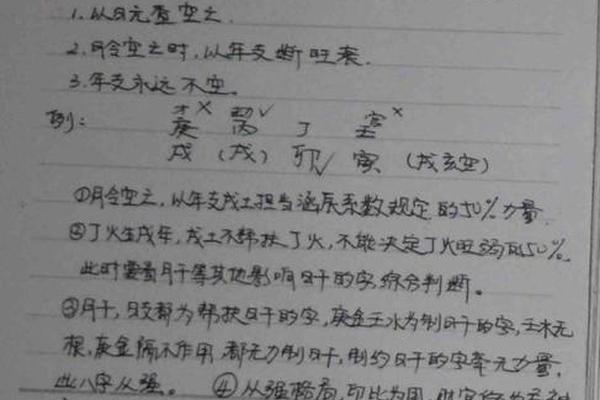 1. 从日元查空亡.
2. 月令空亡时, 以年支断旺衰.
3. 年支永远不空。
例:
庚× 丙√ 丁 壬×
戌 (戌) 卯√ 寅 (戌亥空)
①月令空亡, 以年支戌土担当 系数规定的50%力量.
②丁火生戌年, 戌土不帮扶丁火, 不能决定丁火旺弱的50%.
此时要看月干等其他影响日干的字, 综合判断。
③月干, 日支都为帮扶日干的字, 庚金壬水为制日干的字, 壬水无
根, 庚金隔不作用, 都无力制日干, 制约日干的字牵无力量.
此八字从强。 ④从强格局, 印比为用, 财官